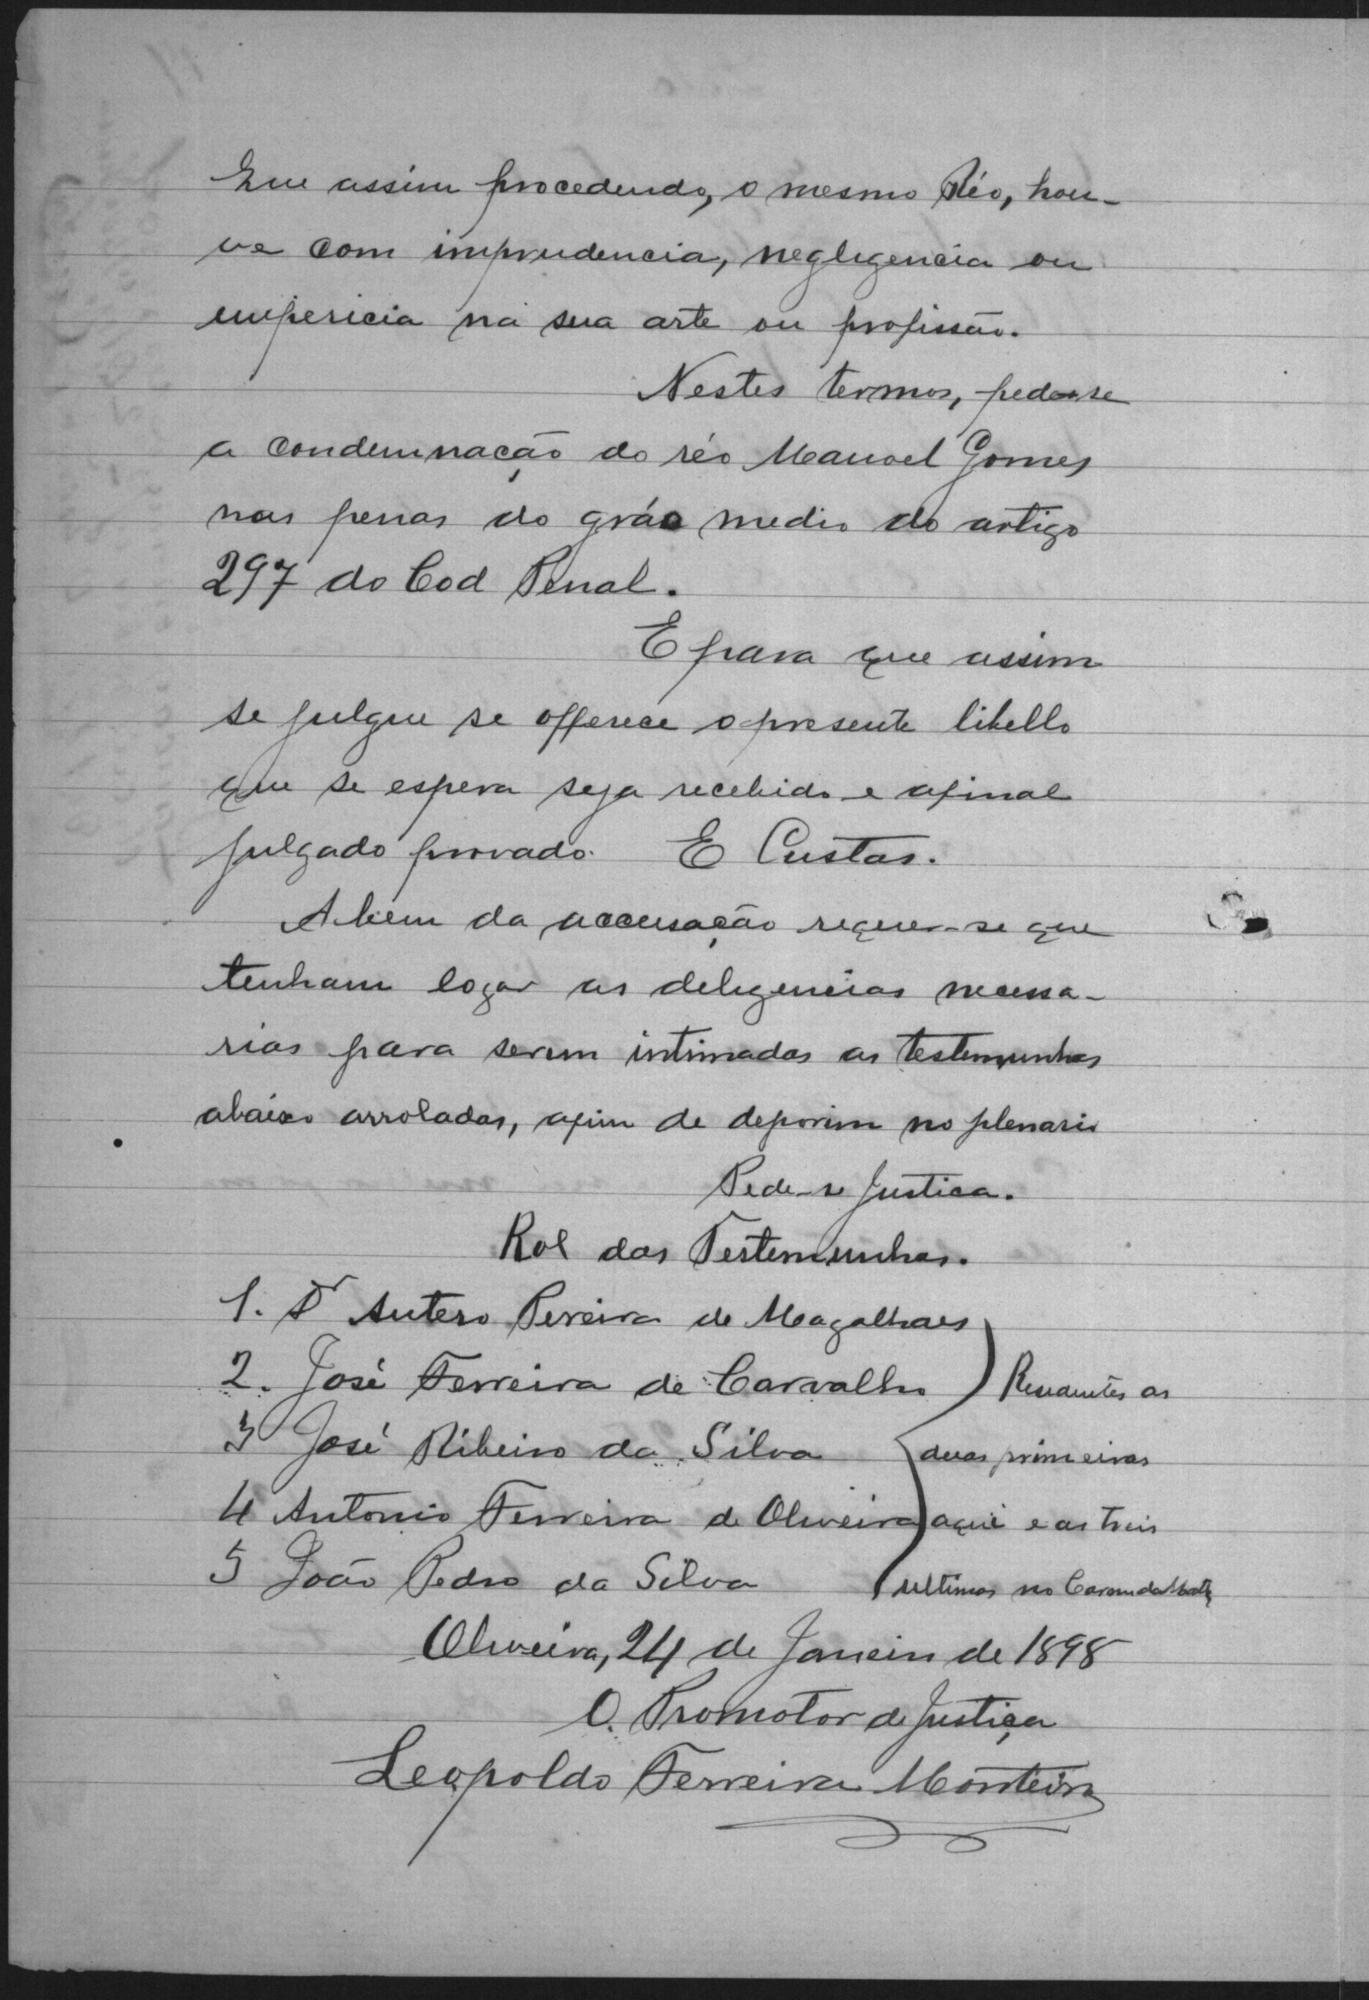 Que assim procedendo, o mesmo Réo, hou-
ve com imprudencia, negligencia ou
impericia na sua arte ou profissão.
Nestes termos, pede-se
a condemnação do réo Manoel Gomes
nas penas do gráo medio do artigo
297 do Cod Penal.
E para que assim
se julgue se offerece o presente libello
que se espera seja recebido e afinal
julgado provado. E Custas.
A bem da accusação requer-se que
tenham logar as deligencias necessa-
rias para serem intimadas as testemunhas
abaixo arroladas, afim de deporim no plenario
Pede-se Justica.
Rol das Testemunhas.
1. Dr Antero Pereira de Magalhaes
2. José Ferreira de Carvalho Residentes as
3 José Ribeiro da Silva duas primeiras
4 Antonio Ferreira de Oliveira aqui e as treis
5 João Pedro da Silva ultimas no
Oliveira, 24 de Janeiro de 1898
O. Promotor de Justiça
Leopoldo Ferreira Monteiro